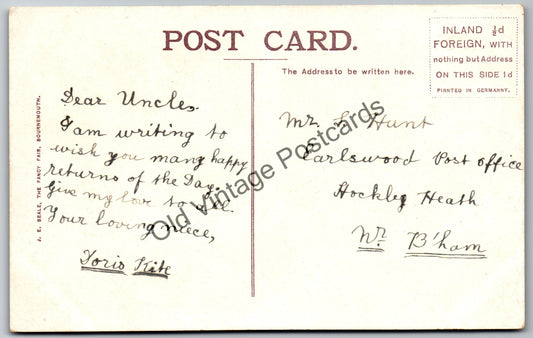 POST CARD.
INLAND ½d
FOREIGN, WITH
nothing but Address
ON THIS SIDE 1d
PRINTED IN GERMANY.
The Address to be written here.
J. E. BEALE, THE FANCY FAIR, BOURNEMOUTH.
Dear Uncle,
I am writing to
wish you many happy
returns of the Day.
Give my love to all.
Your loving niece,
Doris Kite
Mr. L. Hunt
Earlswood Post office
Hockley Heath
Nr. B'ham
Old Vintage Postcards